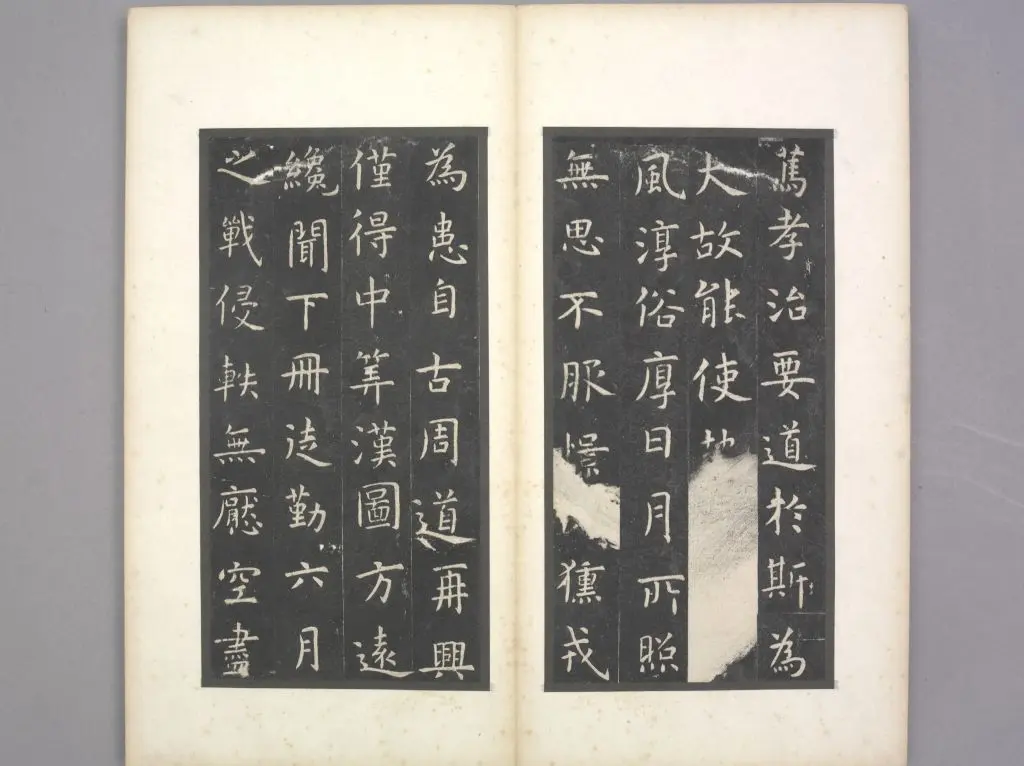 篤孝治要道於斯為
大故能使
風淳俗厚日月所照
無思不服憬獯戎
為患自古周道再興
僅得中筭漢圖方遠
纔聞下冊徒勤六月
之戰侵軼無懕空盡